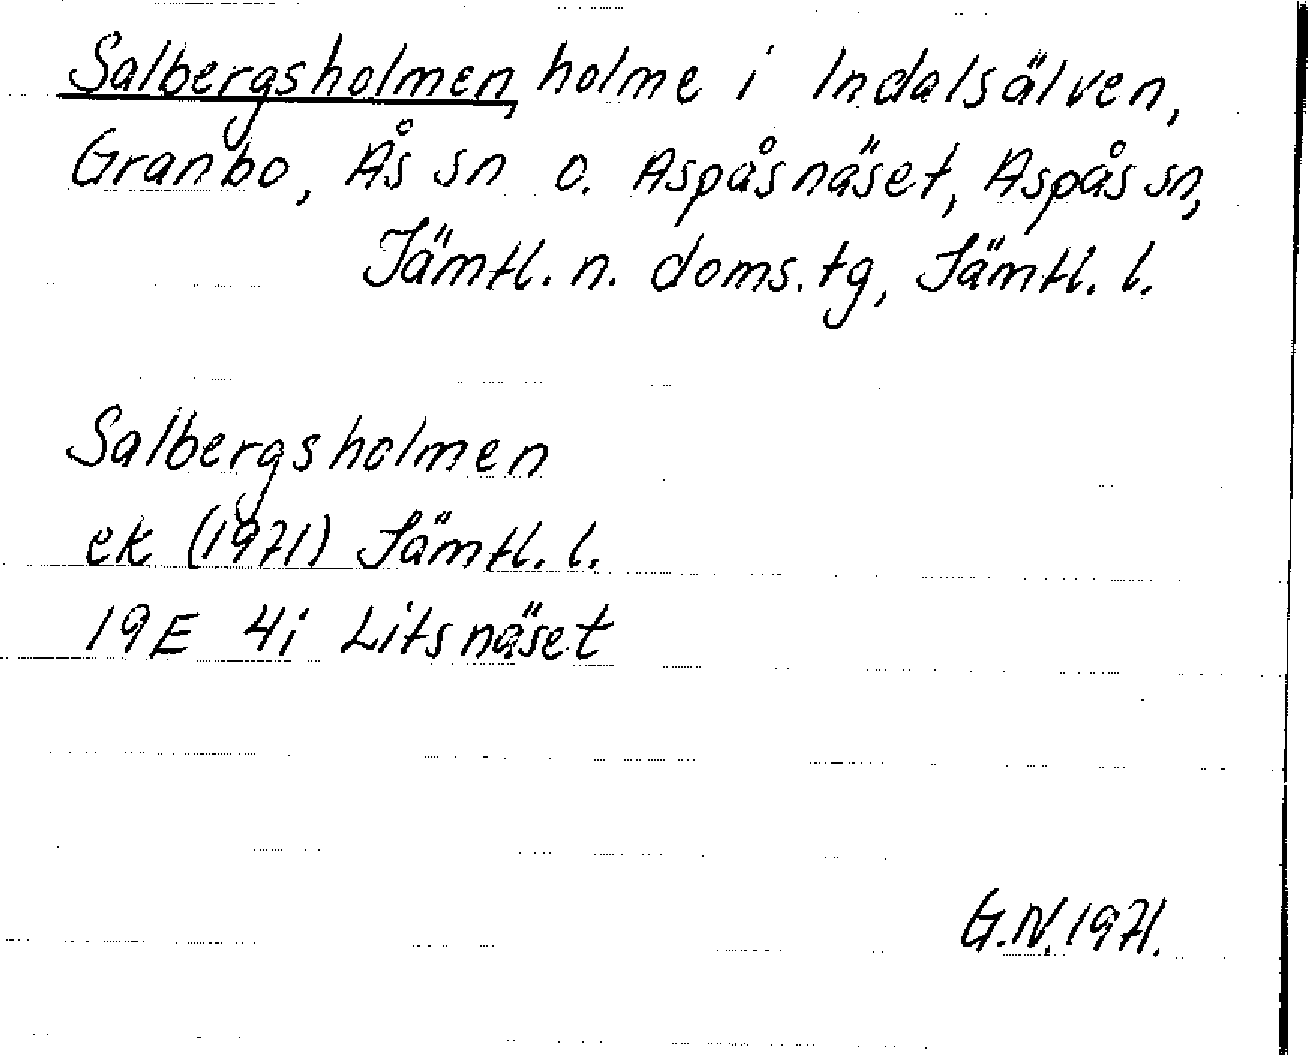 Salbergsholmen, holme i Indalsälven,
Granbo, Ås sn o. Aspåsnäset, Aspås sn,
Jämtl. n. doms. tg, Jämtl. l.
Salbergsholmen
ek (1971) Jämtl. l.
19E 4i Litsnäset
G.N. 1971.